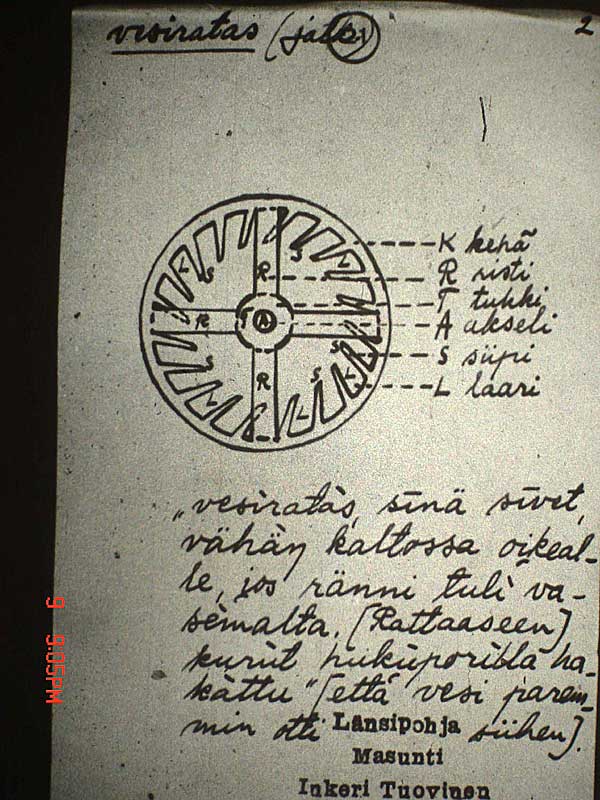 vesiratas (jatk.)
21
2
K kehä
R risti
T tukki
A akseli
S siipi
L laari
„vesiratàs, sīnä sīvet,
vähäŋ kaltossa oikeal-
le, jos ränni tuli va-
semalta. [Rattaaseen]
kurut pukuporilla ha-
kattu" [että vesi parem-
min otti siihen].
Länsipohja
Masunti
Inkeri Tuovinen
9 9:05PM